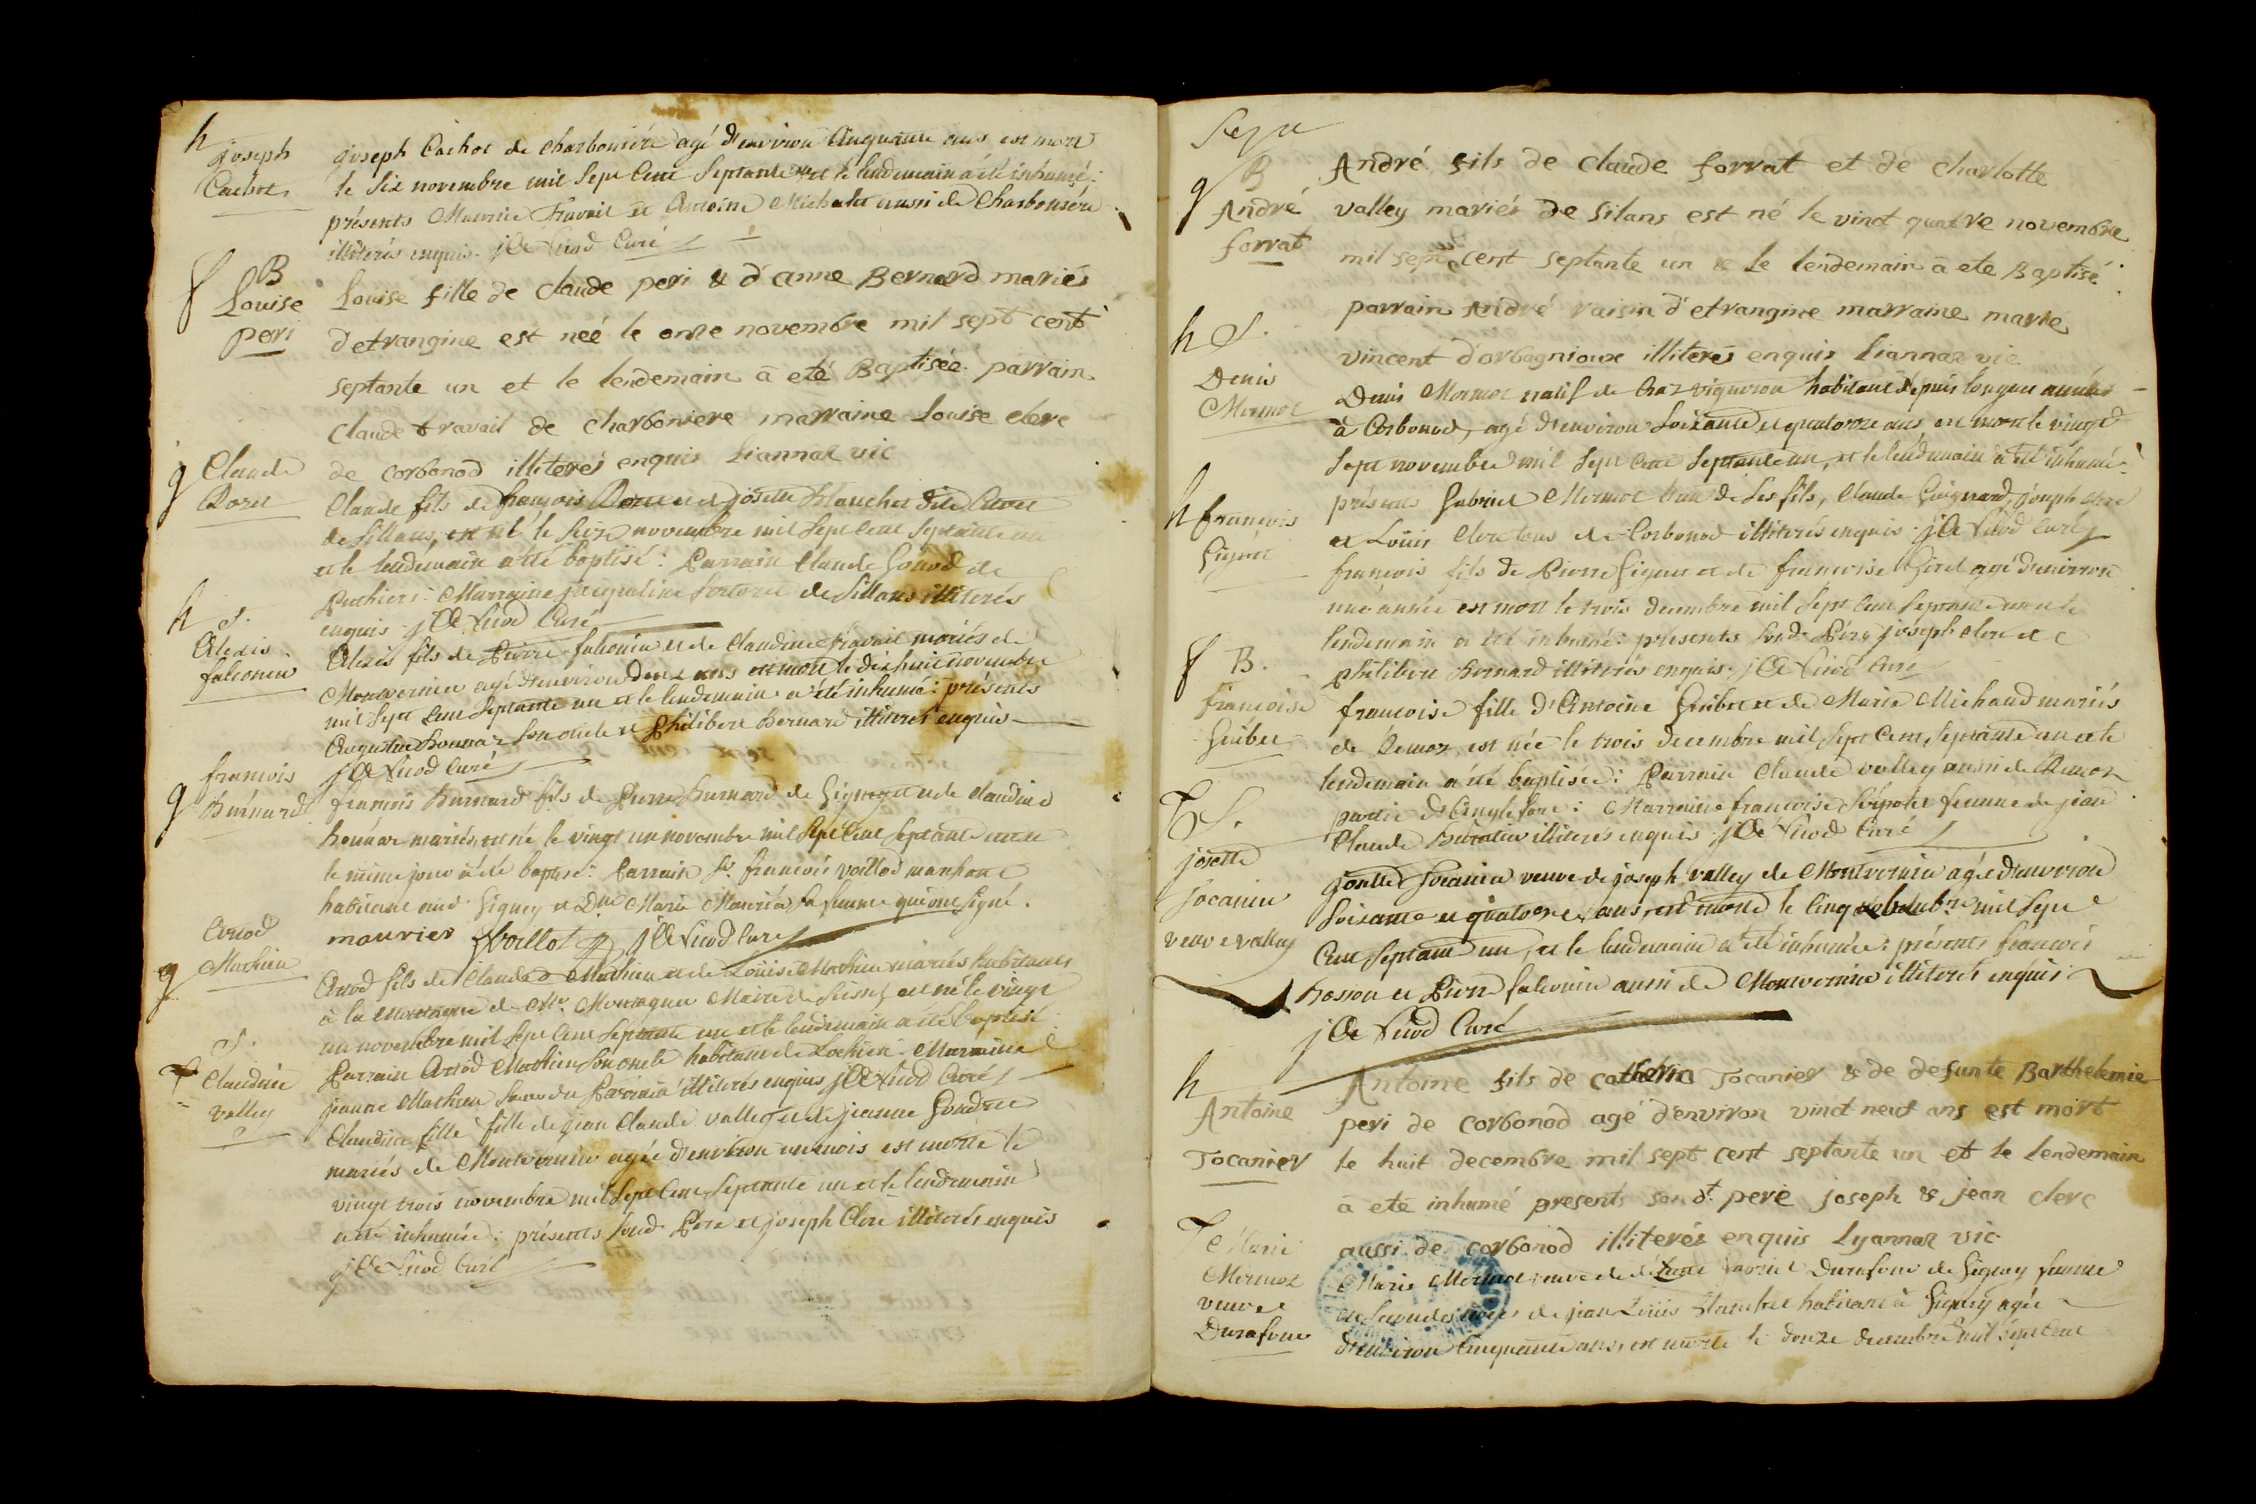 h
joseph
Cachot
joseph Cachot de charbonière agé d'environ Cinquante ans est mort
le six novembre mil sept Cent septante un et le lendemain a été inhumé :
présents Maurice Travail et Antoine Michalet aussi de Charbonière
illiterés enquis. Curé
f B
Louise
peri
Louise fille de claude peri & d'anne Bernard mariés
d'etrangine est neé le onze novembre mil sept cent
septante un et le lendemain a eté Baptisée parrain
claude travail de charboniere marraine Louise clerc
de corbonod illiterés enquis Liannaz vic
g Claude
Claude fils de françois et de josette Blanchet
de Sillans, est né le seize novembre mil sept Cent septante un
et le lendemain a été baptisé : Parrain Claude de
Puthier : Marraine jacqueline de Sillans illiterés
enquis. Curé
h S.
Alexis
falconin
Alexis fils de Pierre falconin et de Claudine travail mariés de
Montvernier agé d'environ deux ans est mort le dix huit novembre
mil sept Cent septante un et le lendemain a été inhumé : présents
Augustin Bonnaz son oncle et Philibert Bernard illiterés enquis
Curé
g
françois
Burnard
françois Burnard fils de Pierre Burnard de Gignez et de claudine
mariés, est né le vingt un novembre mil sept Cent septante un et
le même jour a été baptisé : Parrain Sr. françois voillod marchand
habitant aud. Gignez et Dlle Marie Maurier sa femme qui ont signé.
maurier Voillot Curé
g
Mathieu
fils de Claude Mathieu et de Louise Mathieu mariés habitants
à la montagne de Mr. Montagnier Maire de est né le vingt
un novembre mil sept Cent septante un et le lendemain a été baptisé
Parrain Mathieu son oncle habitant de Lochieu. Marraine
jeanne Mathieu soeur du Parrain illiterés enquis Curé
S.
Claudine
valley
Claudine fille de jean Claude valley et de jeanne
mariés de Montvernier agée d'environ un mois est morte le
vingt trois novembre mil sept Cent septante un et le lendemain
a été inhumée : présents soud. Père et joseph Clerc illiterés enquis
Curé
Sept
g B
André
forrat
André fils de claude forrat et de charlotte
valley mariés de silans est né le vinct quatre novembre
mil sept cent septante un & le lendemain a eté Baptisé
parrain André raisin d'etrangine marraine marie
vincent d'orbagnioux illiterés enquis Liannaz vic
h S.
Denis
Mermet
Denis Mermet natif de Chaz vigneron habitant depuis longues années
à Corbonod, agé d'environ soixante et quatorze ans est mort le vingt
sept novembre mil sept Cent septante un, et le lendemain a été inhumé :
présents Gabriel Mermet l'un de ses fils, Claude Guignard, joseph Clerc
et Louis Clerc tous de Corbonod illiterés enquis. Curé
h françois
françois fils de Pierre et de françoise agé d'environ
une année est mort le trois decembre mil sept Cent septante un et le
lendemain a été inhumé : présents soud. Père joseph clerc et
philibert Bernard illiterés enquis. Curé
f B.
françoise
Guibet
françoise fille d'Antoine Guibet et de Marie Michaud mariés
de Remoz est née le trois decembre mil sept Cent septante un et le
lendemain a été baptisée : Parrain Claude valley aussi de Remoz
partie d'Anglefort : Marraine françoise femme de jean
Claude illiterés enquis. Curé
S.
josette
jocanier
veuve valley
josette jocanier veuve de joseph valley de Montvernier agée d'environ
soixante et quatorze ans, est morte le Cinq mil sept
Cent septante un, et le lendemain a été inhumée : présents françois
Bosson et Pierre falconin aussi de Montvernier illiterés enquis.
Curé
h
Antoine
Jocanier
Antoine fils de Jocanier & de defunte Barthelemie
peri de corbonod agé d'environ vinct neuf ans est mort
le huit decembre mil sept cent septante un et le lendemain
a eté inhumé presents son dt. pere joseph & jean clerc
aussi de corbonod illiterés enquis Lyannaz vic
Marie
Mermet
veuve
Durafour
Marie Mermet veuve de Durafour de Gignez femme
en secondes noces de jean Louis habitant à Gignez agée
d'environ Cinquante ans, est morte le douze decembre mil sept Cent